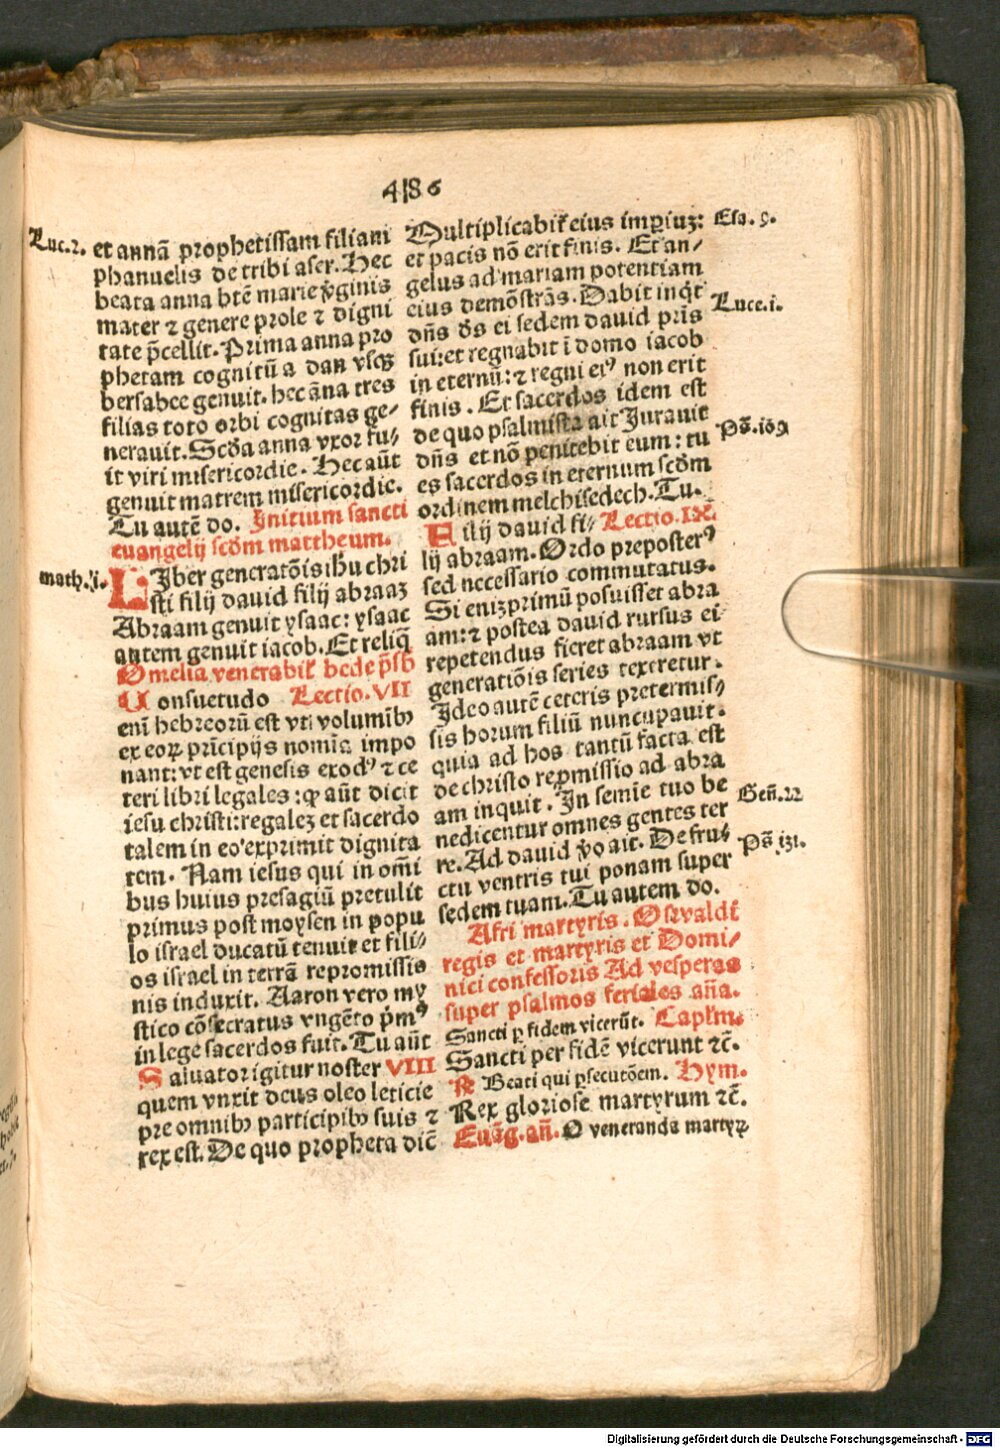 486
Luc.2.
et annā prophetissam filiam
phanuelis de tribi aser. Hec
beata anna btē marie ꝟginis
mater ⁊ genere prole ⁊ digni
tate p̄cellit. Prima anna pro
phetam cognitū a dan vsqꝫ
bersabee genuit. hec āna tres
filias toto orbi cognitas ge⸗
nerauit. Scd̄a anna vxor fu⸗
it viri misericordie. Hec aūt
genuit matrem misericordie.
Tu autē do. Initium sancti
euangelij scd̄m mattheum.
math.i.
LIber generatōis ihū chri
sti filij dauid filij abraaꝫ
Abraam genuit ysaac: ysaac
autem genuit iacob. Et reliq̄
Omelia venerabil' bede p̄sb
Consuetudo Lectio. VII
eni hebreorū est vti volumībꝰ
ex eoꝝ prīcipijs nomīa impo
nant: vt est genesis exodꝰ ⁊ ce
teri libri legales: ꝙ aūt dicit
iesu christi: regaleꝫ et sacerdo
talem in eo exprimit dignita
tem. Nam iesus qui in om̄i
bus huius presagiū pretulit
primus post moysen in popu
lo israel ducatū tenuit et fili⸗
os israel in terrā repromissio
nis induxit. Aaron vero my
stico cōsecratus vngēto p̄mꝰ
in lege sacerdos fuit. Tu aūt
Saluator igitur noster VIII
quem vnxit deus oleo leticie
pre omnibꝰ participibꝰ suis ⁊
rex est. De quo propheta dic̄
Multiplicabit̄ eius imꝑiuꝫ:
Esa. 9.
et pacis nō erit finis. Et an⸗
gelus ad mariam potentiam
eius demōstrās. Dabit inq̄t
Luce.i.
dn̄s d̄s ei sedem dauid pr̄is
sui: et regnabit ī domo iacob
in eternū: ⁊ regni eiꝰ non erit
finis. Et sacerdos idem est
de quo psalmista ait Jurauit
Ps̄. 109
dn̄s et nō penitebit eum: tu
es sacerdos in eternum scd̄m
ordinem melchisedech. Tu.
Filij dauid fi⸗ Lectio. IX.
lij abraam. Ordo preposterꝰ
sed necessario commutatus.
Si enim primū posuisset abra
am: ⁊ postea dauid rursus ei
repetendus fieret abraam vt
generatiōis series texeretur.
Ideo autē ceteris pretermis⸗
sis horum filiū nuncupauit.
quia ad hos tantū facta est
de christo repmissio ad abra
am inquit. In semīe tuo be
Gen̄. 22
nedicentur omnes gentes ter
re. Ad dauid ꝟo ait. De fru⸗
Ps̄. 131.
ctu ventris tui ponam super
sedem tuam. Tu autem do.
Afri martyris. Oswaldi
regis et martyris et Domi⸗
nici confessoris Ad vesperas
super psalmos feriales añа.
Sancti ꝑ fidem vicerūt. Caplm.
Sancti per fidē vicerunt ⁊c̄.
℞ Beati qui ꝑsecutōem. Hym.
Rex gloriose martyrum ⁊c̄.
Euāg. an̄. O veneranda martyꝝ
Digitalisierung gefördert durch die Deutsche Forschungsgemeinschaft - DFG